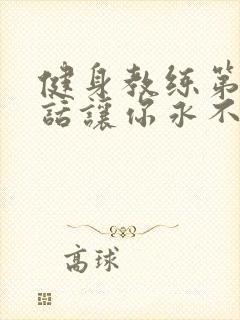 健身教练第
話讓你永不
高球